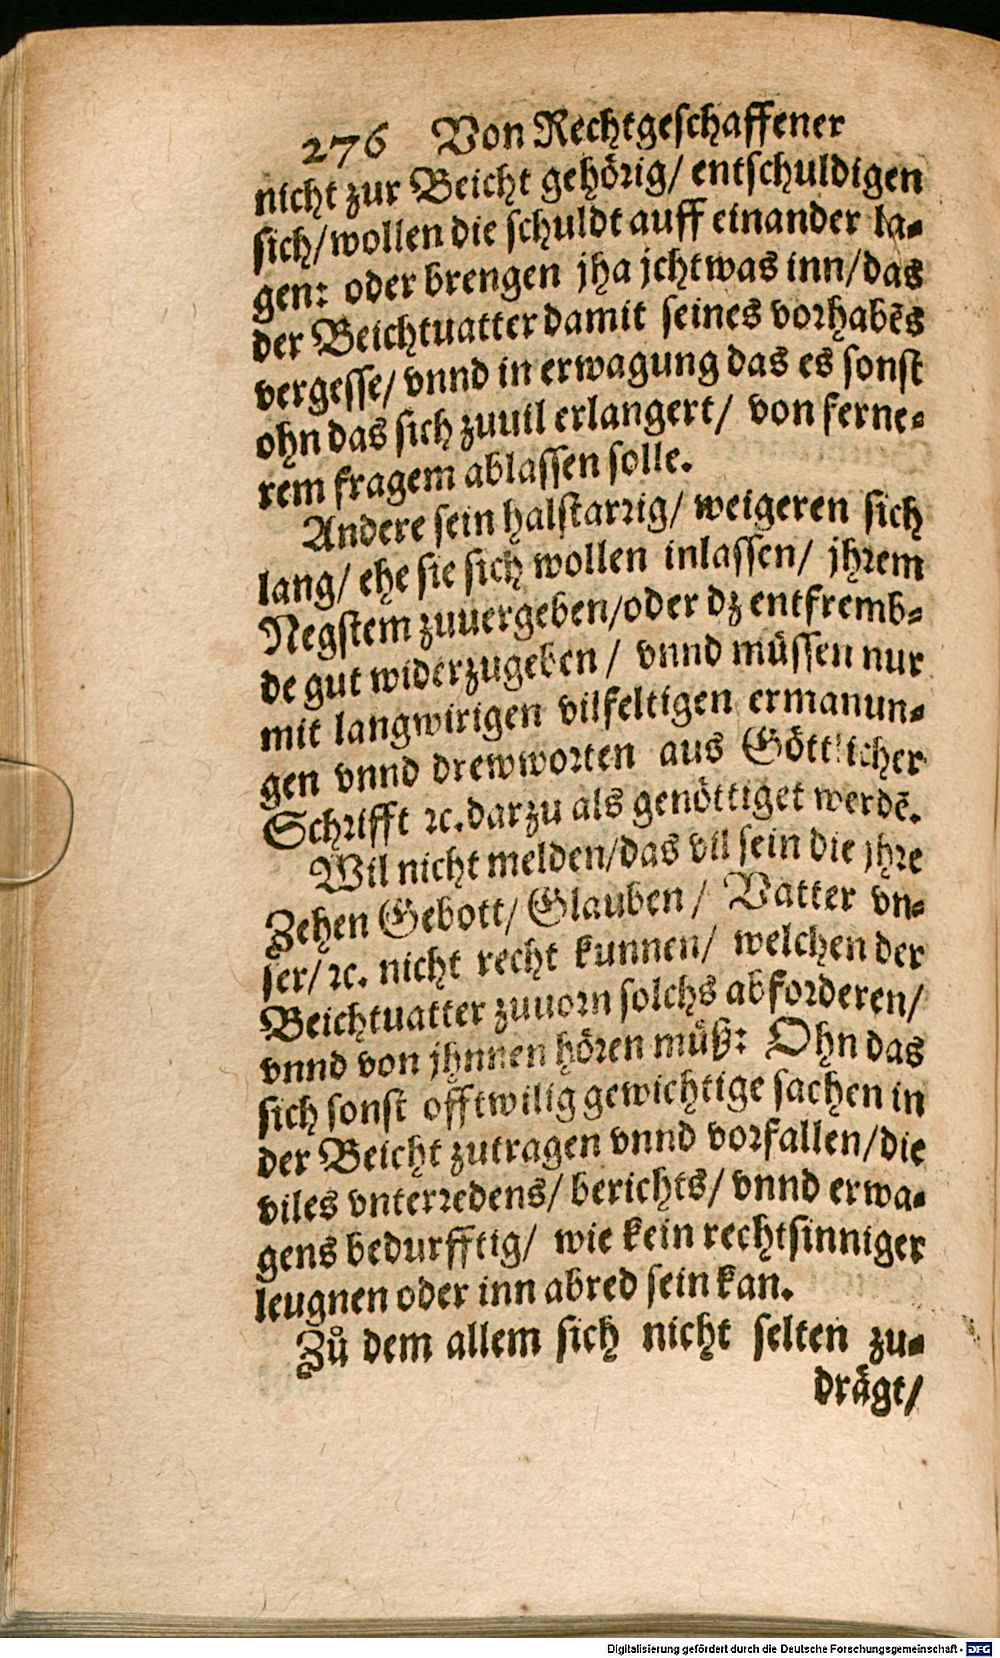 276 Von Rechtgeschaffener
nicht zur Beicht gehörig/ entschuldigen
sich/wollen die schuldt auff einander la⸗
gen: oder brengen jha jchtwas inn/das
der Beichtuatter damit seines vorhabẽs
vergesse/ vnnd in erwagung das es sonst
ohn das sich zuuil erlangert/ von ferne⸗
rem fragem ablassen solle.
Andere sein halstarrig/ weigeren sich
lang/ ehe sie sich wollen inlassen/ jhrem
Negstem zuuergeben/oder dz entfremb⸗
de gut widerzugeben/ vnnd müssen nur
mit langwirigen vilfeltigen ermanun⸗
gen vnnd drewworten aus Göttlicher
Schrifft ꝛc.darzu als genöttiget werdẽ.
Wil nicht melden/das vil sein die jhre
Zehen Gebott/ Glauben/ Vatter vn⸗
ser/ ꝛc. nicht recht kunnen/ welchen der
Beichtuatter zuuorn solchs abforderen/
vnnd von jhnnen hören müß: Ohn das
sich sonst offtwilig gewichtige sachen in
der Beicht zutragen vnnd vorfallen/die
viles vnterredens/ berichts/ vnnd erwa⸗
gens bedurfftig/ wie kein rechtsinniger
leugnen oder inn abred sein kan.
Zů dem allem sich nicht selten zu⸗
drägt/
Digitalisierung gefördert durch die Deutsche Forschungsgemeinschaft - DFG